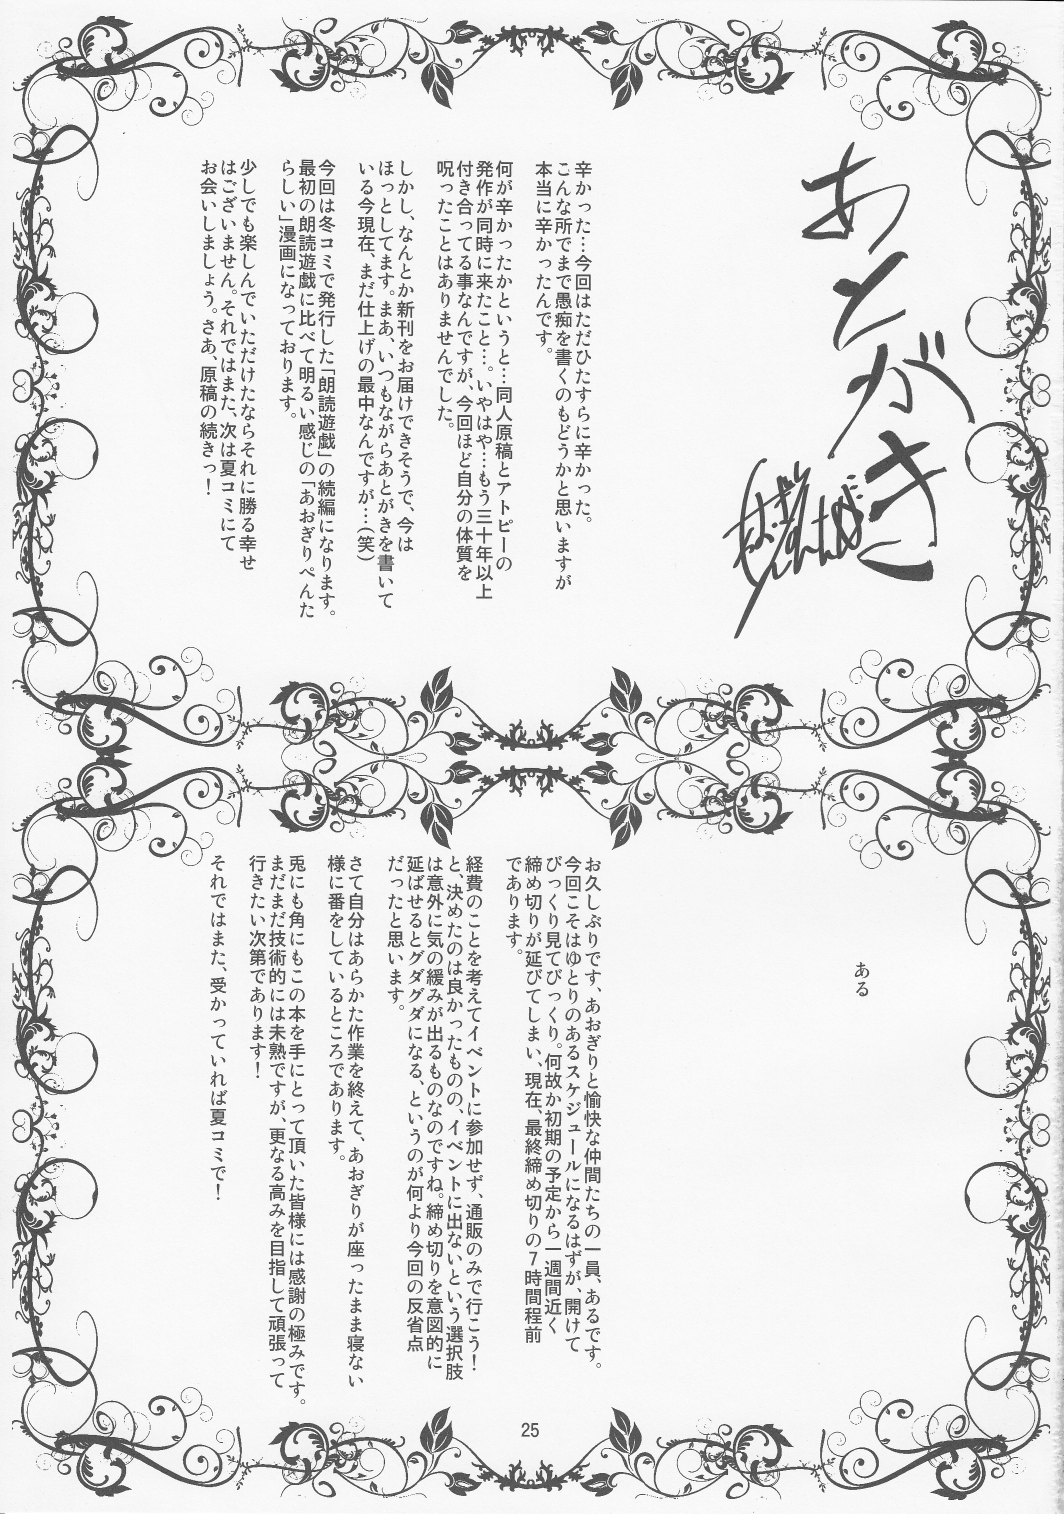 あとがき
辛かった…今回はただひたすらに辛かった。
こんな所でまで愚痴を書くのもどうかと思いますが
本当に辛かったんです。
何が辛かったかというと…同人原稿とアトピーの
発作が同時に来たこと…。いやはや…もう三十年以上
付き合ってる事なんですが、今回ほど自分の体質を
呪ったことはありませんでした。
しかし、なんとか新刊をお届けできそうで、今は
ほっとしてます。まあ、いつもながらあとがきを書いて
いる今現在、まだ仕上げの最中なんですが…(笑)
今回は冬コミで発行した「朗読遊戯」の続編になります。
最初の朗読遊戯に比べて明るい感じの「あおぎりぺんた
らしい」漫画になっております。
少しでも楽しんでいただけたならそれに勝る幸せ
はございません。それではまた、次は夏コミにて
お会いしましょう。さあ、原稿の続きっ!
ある
お久しぶりです、あおぎりと愉快な仲間たちの一員、あるです。
今回こそはゆとりのあるスケジュールになるはずが、開けて
びっくり見てびっくり。何故か初期の予定から一週間近く
締め切りが延びてしまい、現在、最終締め切りの7時間程前
であります。
経費のことを考えてイベントに参加せず、通販のみで行こう!
と、決めたのは良かったものの、イベントに出ないという選択肢
は意外に気の緩みが出るものなのですね。締め切りを意図的に
延ばせるとグダグダになる、というのが何より今回の反省点
だったと思います。
さて自分はあらかた作業を終えて、あおぎりが座ったまま寝ない
様に番をしているところであります。
兎にも角にもこの本を手にとって頂いた皆様には感謝の極みです。
まだまだ技術的には未熟ですが、更なる高みを目指して頑張って
行きたい次第であります!
それではまた、受かっていれば夏コミで!
25